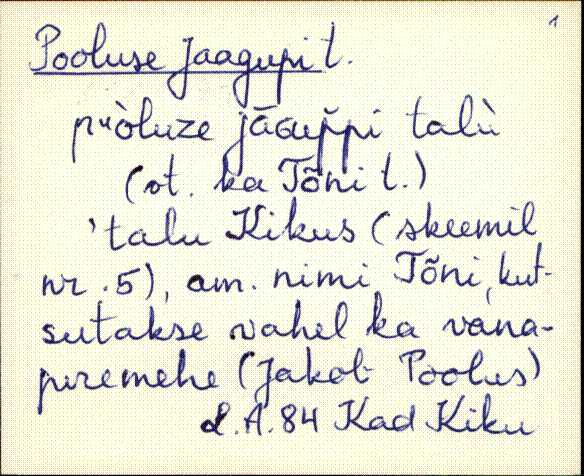 1
Pooluse Jaagupi t.
pu̬òluze jāGup̆pi talù
(vt. ka Tõni t.)
'talu Kikus (skeemil
nr. 5), am. nimi Tõni, kut-
sutakse vahel ka vana-
peremehe (Jakob Poolus)
L.A. 84 Kad Kiku